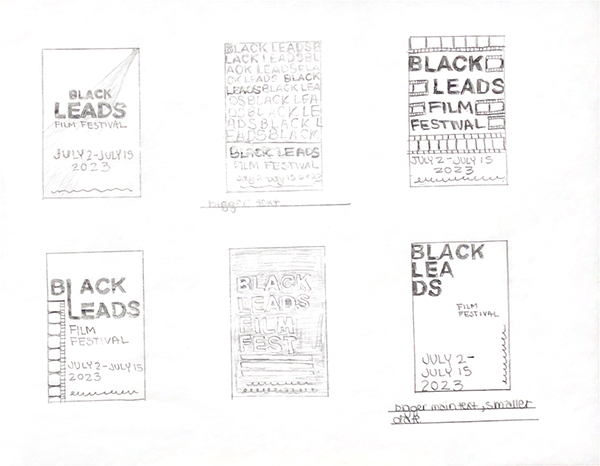 BLACK
LEADS
FILM FESTIVAL
JULY 2-JULY 15
2023
BLACK LEADSB
LACK LEADSBL
ACK LEADSBLA
CK LEADS BLACK
LEADSBLACK LEA
DSBLACK LEA
ADSBLACK L
EADSBLACK
BLACK LEADS
FILM FESTIVAL
July 2-July 15 2023
bigger text
BLACK
LEADS
FILM
FESTIVAL
JULY 2-JULY 15
2023
BLACK
LEADS
FILM
FESTIVAL
JULY 2-JULY 15
2023
BLACK
LEADS
FILM
FEST
BLACK
LEA
DS
FILM
FESTIVAL
JULY 2-
JULY 15
2023
bigger main text, smaller
date